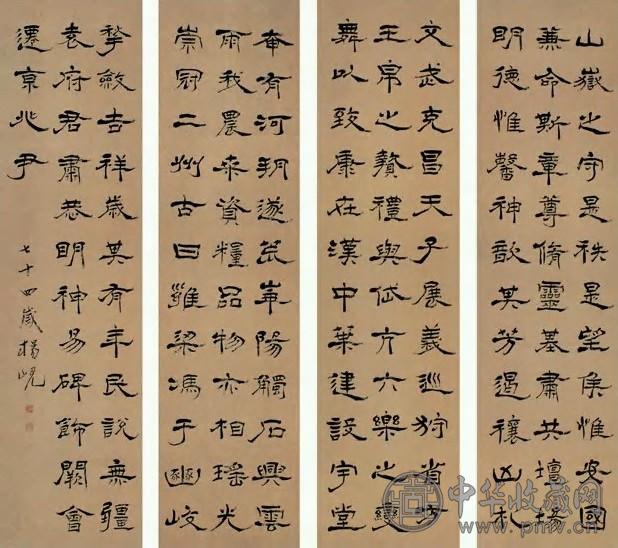 山嶽之守是秩是望侯惟安國
兼命斯章尊脩靈基肅共壇場
明德惟馨神歆其芳遏禳凶札
文武克昌天子展義巡狩省方
玉帛之贄禮與岱亢六樂之變
舞以致康在漢中葉建設宇堂
奄有河朔遂荒崋陽觸石興雲
雨我農桑資糧品物亦相瑤光
崇冠二州古曰雍梁馮于豳岐
揫斂吉祥歲其有年民說無疆
袁府君肅恭明神易碑飾闕會
遷京兆尹
七十四歲楊峴
中华收藏网